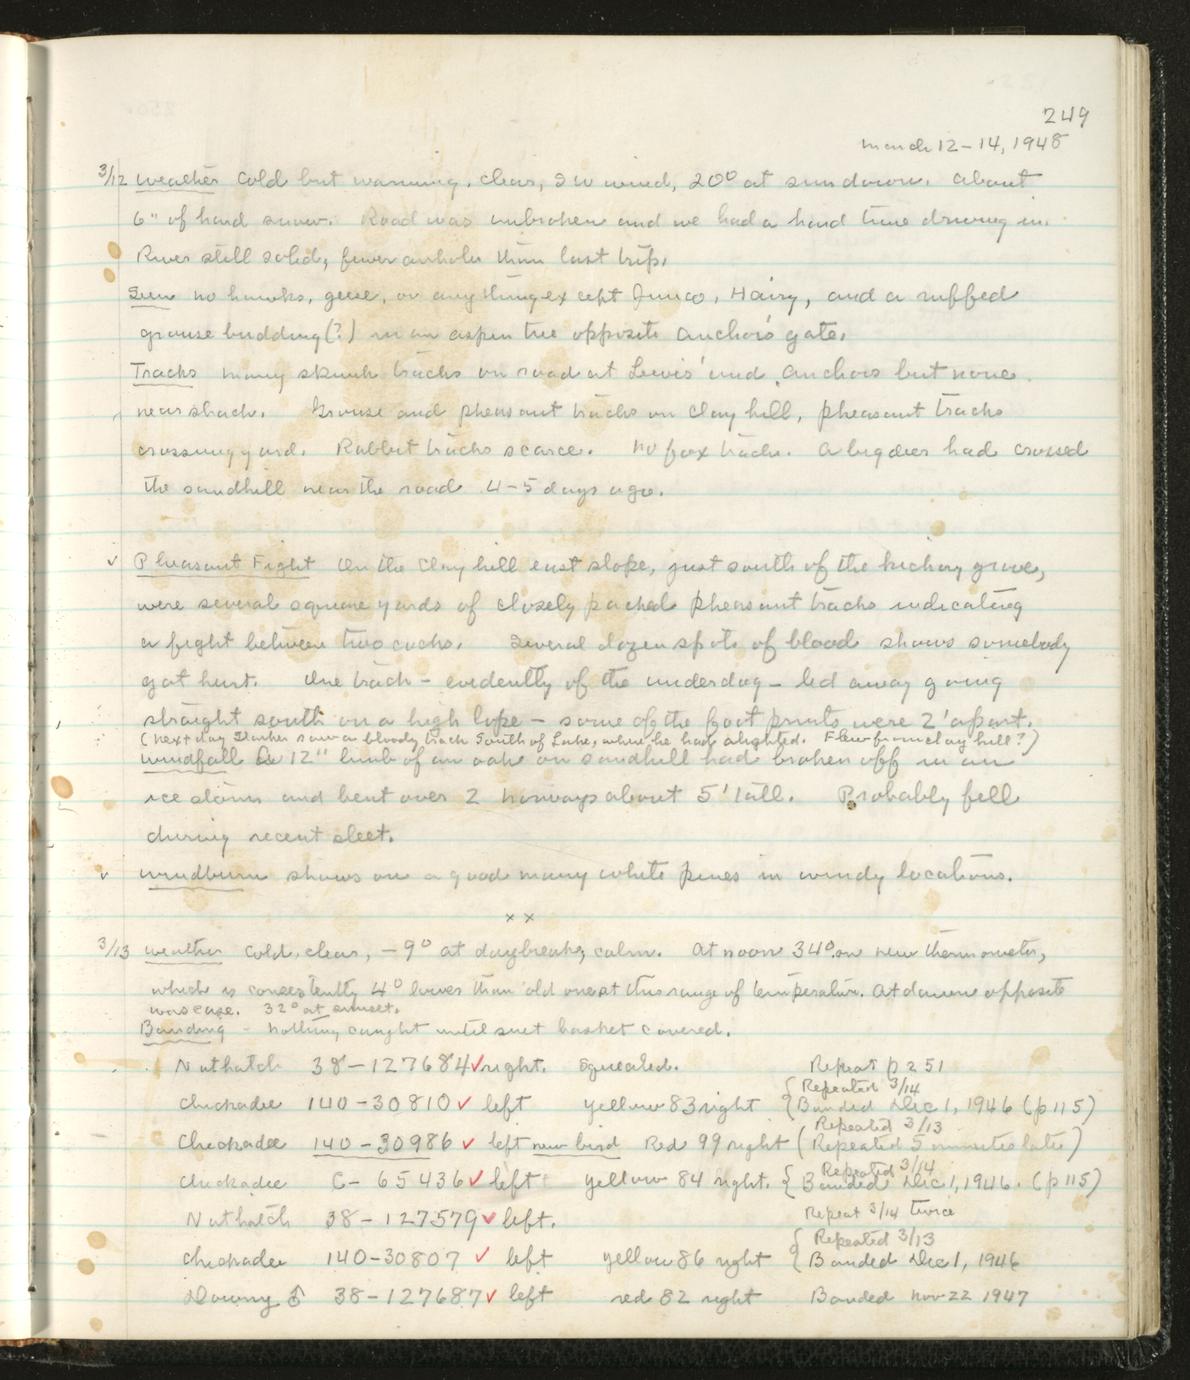 249
March 12-14, 1948
3/12 Weather Cold but warming, clear, SW wind, 20° at sundown. About
6" of hard snow. Road was unbroken and we had a hard time driving in.
River still solid, fewer airholes than last trip.
Seen no hawks, geese, or anything except Junco, Hairy, and a ruffed
grouse budding(?) in an aspen tree opposite Anchor's gate.
Tracks many skunk tracks on road at Lewis' and Anchors but none
near shack. Grouse and pheasant tracks on clay hill, pheasant tracks
crossing yard. Rabbit tracks scarce. No fox tracks. A big deer had crossed
the sandhill near the road 4-5 days ago.
✓ Pheasant Fight On the clay hill east slope, just south of the hickory grove,
were several square yards of closely packed pheasant tracks indicating
a fight between two cocks. Several dozen spots of blood shows somebody
got hurt. One track - evidently of the underdog - led away going
straight south on a high lope - some of the foot prints were 2' apart.
(Next day Starker saw a bloody track south of Lake, where he had alighted. Flew from clay hill?)
Windfall A 12" limb of an oak on sandhill had broken off in an
ice storm and bent over 2 Norways about 5' tall. Probably fell
during recent sleet.
✓ Windburn shows on a good many white pines in windy locations.
x x
3/13 Weather Cold, clear, -9° at daybreak, calm. At noon 34° on new thermometer,
which is consistently 4° lower than old one at this range of temperature. At dawn opposite
was case. 32° at sunset.
Banding - Nothing caught until suet basket covered.
Nuthatch 38-127684 ✓ right. Squealed. Repeat p 251
{ Repeated 3/14
Chickadee 140-30810 ✓ left yellow 83 right { Banded Dec 1, 1946 (p 115)
Repeated 3/13
Chickadee 140-30986 ✓ left new bird Red 99 right (Repeated 5 minutes later)
Repeated 3/14
Chickadee C- 65436 ✓ left yellow 84 right. { Banded Dec 1, 1946. (p 115)
Nuthatch 38-127579 ✓ left. Repeat 3/14 twice
{ Repeated 3/13
Chickadee 140-30807 ✓ left yellow 86 right { Banded Dec 1, 1946
Downy ♂ 38-127687 ✓ left red 82 right Banded Nov 22 1947